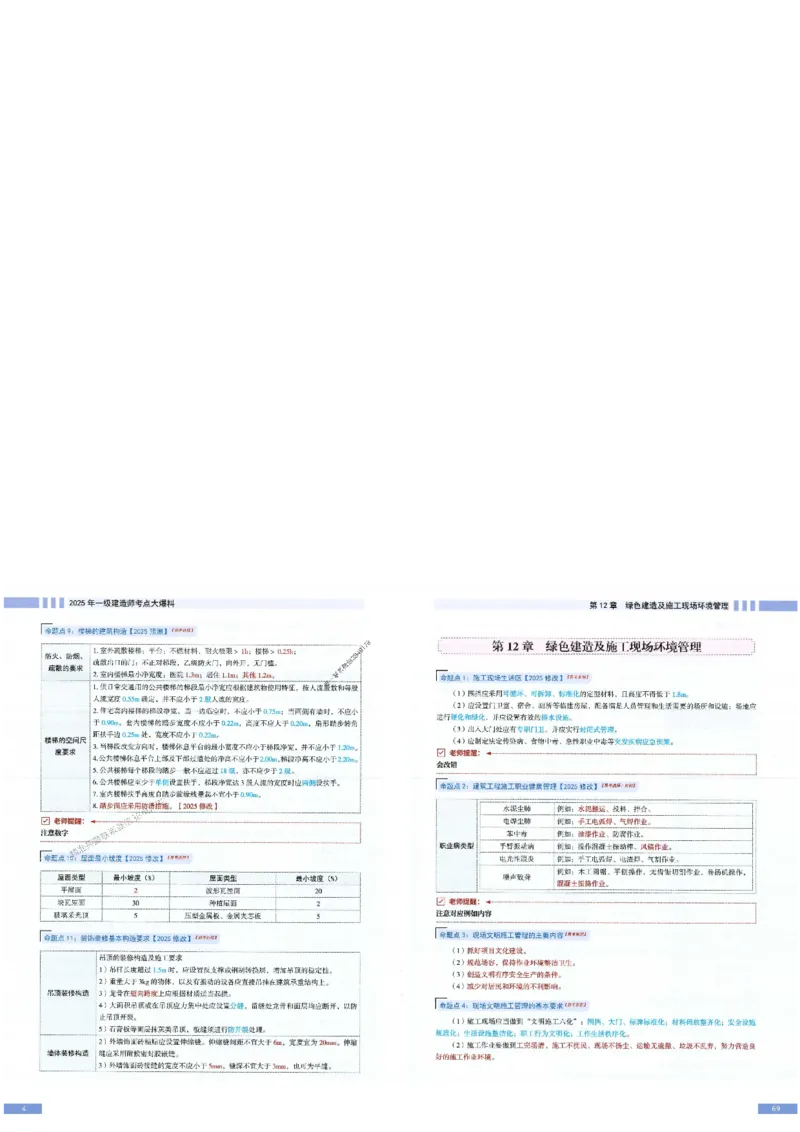 2025 年一级建造师考点大爆料
命题点 9：楼梯的建筑构造【2025 预测】
防火、防烟、
疏散的要求
1. 室外疏散楼梯：平台：不燃材料、耐火极限 > 1h；楼梯 > 0.25h；
疏散出口的门：不正对梯段，乙级防火门，向外开，无门槛。
2. 室内楼梯最小净宽：医院 1.3m；居住 1.1m；其他 1.2m。
楼梯的空间尺
度要求
1. 供日常交通用的公共楼梯的梯段最小净宽应根据建筑物使用特征，按人流股数和每股
人流宽度 0.55m 确定，并不应小于 2 股人流的宽度。
2. 住宅套内楼梯的梯段净宽，当一边临空时，不应小于 0.75m；当两侧有墙时，不应小
于 0.90m。套内楼梯的踏步宽度不应小于 0.22m，高度不应大于 0.20m，扇形踏步转角
距扶手边 0.25m 处，宽度不应小于 0.22m。
3. 当梯段改变方向时，楼梯休息平台的最小宽度不应小于梯段净宽，并不应小于 1.20m。
4. 公共楼梯休息平台上部及下部过道处的净高不应小于 2.00m，梯段净高不应小于 2.20m。
5. 公共楼梯每个梯段的踏步一般不应超过 18 级，亦不应少于 2 级。
6. 公共楼梯应至少于单侧设置扶手，梯段净宽达 3 股人流的宽度时应两侧设扶手。
7. 室内楼梯扶手高度自踏步前缘线量起不宜小于 0.90m。
8. 踏步面应采用防滑措施。【2025 修改】
老师提醒：
注意数字
命题点 10：屋面最小坡度【2025 修改】
屋面类型 最小坡度（%） 屋面类型 最小坡度（%）
平屋面 2 波形瓦屋面 20
块瓦屋面 30 种植屋面 2
玻璃采光顶 5 压型金属板、金属夹芯板 5
命题点 11：装饰装修基本构造要求【2025 修改】
吊顶装修构造
吊顶的装修构造及施工要求
1）吊杆长度超过 1.5m 时，应设置反支撑或钢制转换层，增加吊顶的稳定性。
2）重量大于 3kg 的物体，以及有振动的设备应直接吊挂在建筑承重结构上。
3）龙骨在短向跨度上应根据材质适当起拱。
4）大面积吊顶或在吊顶应力集中处应设置分缝，留缝处龙骨和面层均应断开，以防
止吊顶开裂。
5）石膏板等面层抹灰类吊顶，板缝须进行防开裂处理。
墙体装修构造
2）外墙饰面砖粘贴应设置伸缩缝。伸缩缝间距不宜大于 6m，宽度宜为 20mm，伸缩
缝应采用耐候密封胶嵌缝。
3）外墙饰面砖接缝的宽度不应小于 5mm，缝深不宜大于 3mm，也可为平缝。
4
第 12 章 绿色建造及施工现场环境管理
第 12 章 绿色建造及施工现场环境管理
命题点 1：施工现场生活区【2025 修改】
（1）围挡应采用可循环、可拆卸、标准化的定型材料，且高度不得低于 1.8m。
（2）应设置门卫室、宿舍、厕所等临建房屋，配备满足人员管理和生活需要的场所和设施；场地应
进行硬化和绿化，并应设置有效的排水设施。
（3）出入大门处应有专职门卫，并应实行封闭式管理。
（4）应制定法定传染病、食物中毒、急性职业中毒等突发疾病应急预案。
老师提醒：
会改错
命题点 2：建筑工程施工职业健康管理【2025 修改】
职业病类型
水泥尘肺 例如：水泥搬运、投料、拌合。
电焊尘肺 例如：手工电弧焊、气焊作业。
苯中毒 例如：油漆作业、防腐作业。
手臂振动病 例如：操作混凝土振动棒、风镐作业。
电光性眼炎 例如：手工电弧焊、电渣焊、气割作业。
噪声致聋 例如：木工圆锯、平刨操作，无齿锯切割作业，卷扬机操作，
混凝土振捣作业。
老师提醒：
注意对应例如内容
命题点 3：现场文明施工管理的主要内容
（1）抓好项目文化建设。
（2）规范场容，保持作业环境整洁卫生。
（3）创造文明有序安全生产的条件。
（4）减少对居民和环境的不利影响。
命题点 4：现场文明施工管理的基本要求
（1）施工现场应当做到“文明施工六化”：围挡、大门、标牌标准化；材料码放整齐化；安全设施
规范化；生活设施整洁化；职工行为文明化；工作生活秩序化。
（2）施工作业要做到工完场清，施工不扰民、现场不扬尘、运输无遗撒、垃圾不乱弃，努力营造良
好的施工作业环境。
69